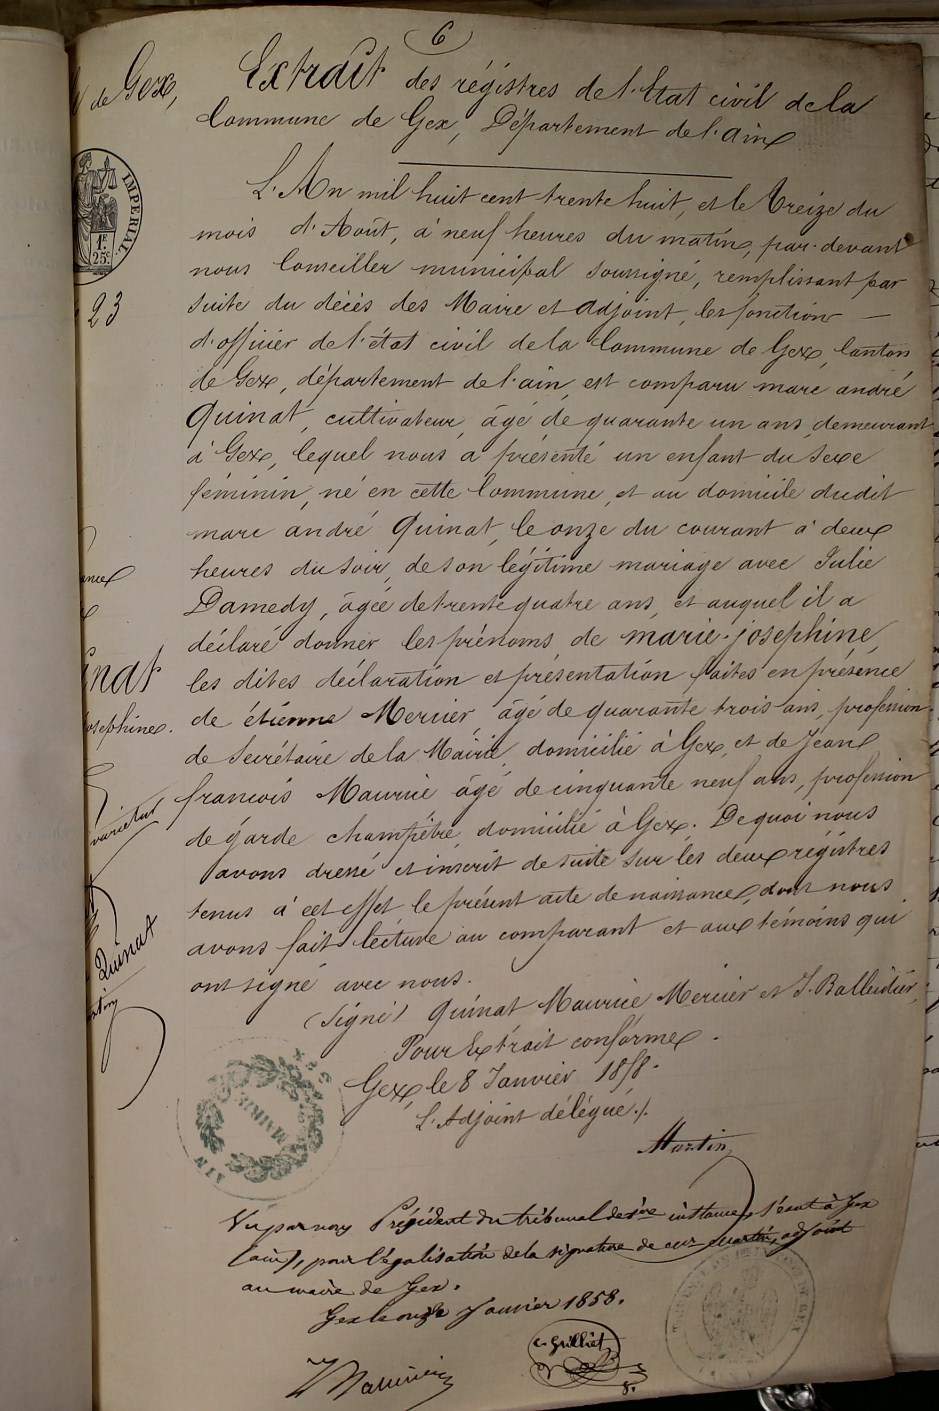 6
de Gex,
Extrait des régistres de l'Etat civil de la
Commune de Gex, Département de l'ain
IMPERIAL
1F
25c
23
L'An mil huit cent trente huit, et le treize du
mois d'Août, à neuf heures du matin, par-devant
nous Conseiller municipal soussigné, remplissant par
suite du décès des Maire et adjoint, les fonctions —
d'officier de l'état civil de la Commune de Gex, Canton
de Gex, département de l'ain, est comparu marc andré
Quinat, cultivateur, âgé de quarante un ans, demeurant
à Gex, lequel nous a présenté un enfant du sexe
féminin, né en cette Commune, et au domicile dudit
marc andré Quinat, le onze du courant à deux
heures du soir, de son légitime mariage avec Julie
Damedy, âgée de trente quatre ans, et auquel il a
déclaré donner les prénoms de marie-josephine,
les dites déclaration et présentation faites en présence
de étienne Mercier âgé de quarante trois ans, profession
de Secrétaire de la Mairie, domicilié à Gex, et de Jean
francois Maurice âgé de cinquante neuf ans, profession
de garde champêtre, domicilié à Gex. De quoi nous
avons dressé et inscrit de suite sur les deux régistres
tenus à cet effet le présent acte de naissance, dont nous
avons fait lecture au comparant et aux témoins qui
ont signé avec nous.
(Signé) Quinat Maurice Mercier et J. Balleidier,
Pour Extrait conforme.
Gex, le 8 Janvier 1858.
L'Adjoint délégué./.
Martin
inat
osephine.
Quinat
MAIRIE
AIN
Vu par nous Président du tribunal de 1ère instance, séant à Gex
(ain), pour légalisation de la signature de mr Martin, adjoint
au maire de Gex.
Gex le onze Janvier 1858.
Grilliet